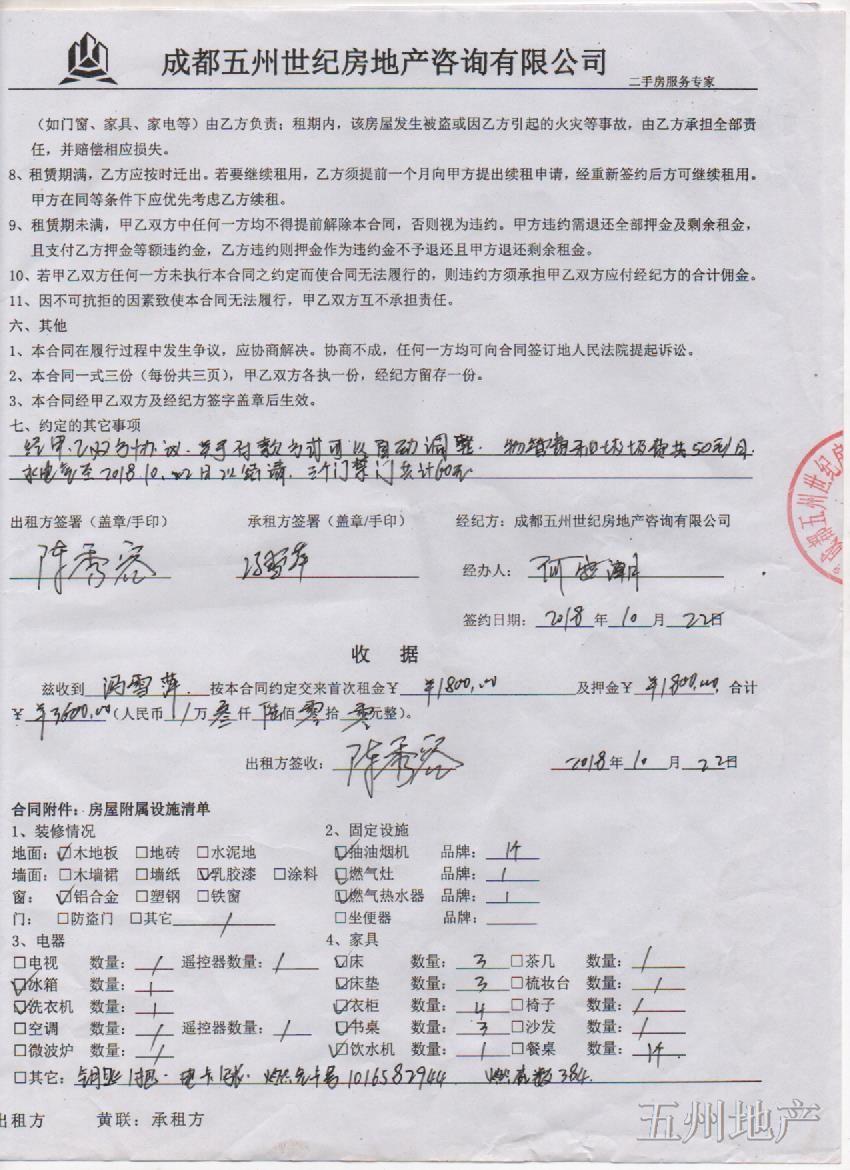 成都五州世纪房地产咨询有限公司
二手房服务专家
（如门窗、家具、家电等）由乙方负责；租期内，该房屋发生被盗或因乙方引起的火灾等事故，由乙方承担全部责
任，并赔偿相应损失。
8、租赁期满，乙方应按时迁出。若要继续租用，乙方须提前一个月向甲方提出续租申请，经重新签约后方可继续租用。
甲方在同等条件下应优先考虑乙方续租。
9、租赁期未满，甲乙双方中任何一方均不得提前解除本合同，否则视为违约。甲方违约需退还全部押金及剩余租金，
且支付乙方押金等额违约金，乙方违约则押金作为违约金不予退还且甲方退还剩余租金。
10、若甲乙双方任何一方未执行本合同之约定而使合同无法履行的，则违约方须承担甲乙双方应付经纪方的合计佣金。
11、因不可抗拒的因素致使本合同无法履行，甲乙双方互不承担责任。
六、其他
1、本合同在履行过程中发生争议，应协商解决。协商不成，任何一方均可向合同签订地人民法院提起诉讼。
2、本合同一式三份（每份共三页），甲乙双方各执一份，经纪方留存一份。
3、本合同经甲乙双方及经纪方签字盖章后生效。
七、约定的其它事项
经甲、乙双方协议，付款方 可以自动调整．物管费和垃圾费共50元/月
水电气至2018.10.22日以结清，三个门禁门卡计60元
出租方签署（盖章/手印） 承租方签署（盖章/手印） 经纪方：成都五州世纪房地产咨询有限公司
陈秀容 冯雪萍 经办人：何
签约日期：2018年10月22日
成都五州世纪房
收 据
兹收到 冯雪萍 按本合同约定交来首次租金￥ ￥1800.00 及押金￥ ￥1800.00 合计
￥ ￥3600.00（人民币 / 万 叁 仟 陆 佰 零 拾 零 元整）。
出租方签收：陈秀容 2018年10月22日
合同附件：房屋附属设施清单
1、装修情况 2、固定设施
地面：☑木地板 □地砖 □水泥地 ☑抽油烟机 品牌：1个
墙面：□木墙裙 □墙纸 ☑乳胶漆 □涂料 ☑燃气灶 品牌：1
窗：☑铝合金 □塑钢 □铁窗 ☑燃气热水器 品牌：1
门：□防盗门 □其它 / □坐便器 品牌：
3、电器 4、家具
□电视 数量：/ 遥控器数量：/ ☑床 数量：3 □茶几 数量：/
☑冰箱 数量：1 ☑床垫 数量：3 □梳妆台 数量：/
☑洗衣机 数量：1 ☑衣柜 数量：4 □椅子 数量：/
□空调 数量：/ 遥控器数量：/ ☑书桌 数量：3 □沙发 数量：/
□微波炉 数量：/ ☑饮水机 数量：1 □餐桌 数量：1个
□其它：钥匙1把．电卡1张．燃气卡号1016582944 燃气数384.
出租方 黄联：承租方
五州地产